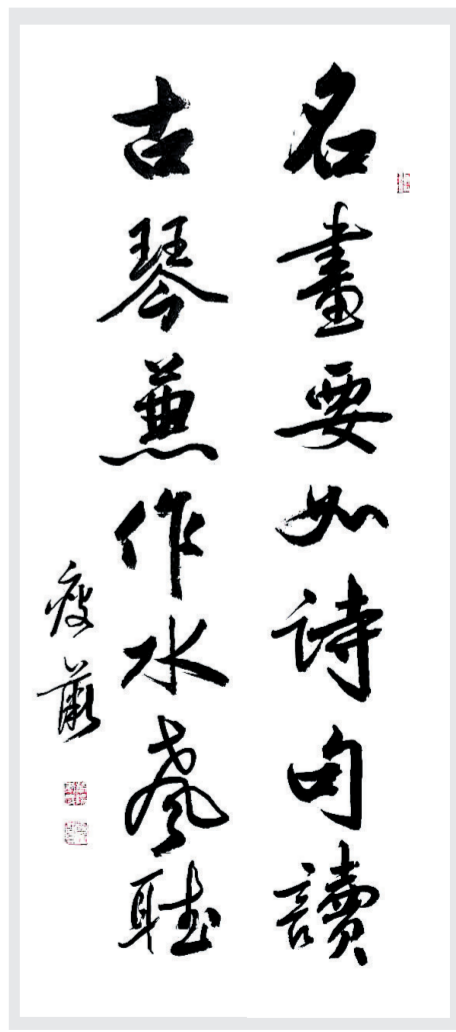 名畫要如詩句讀
古琴兼作水聲聽